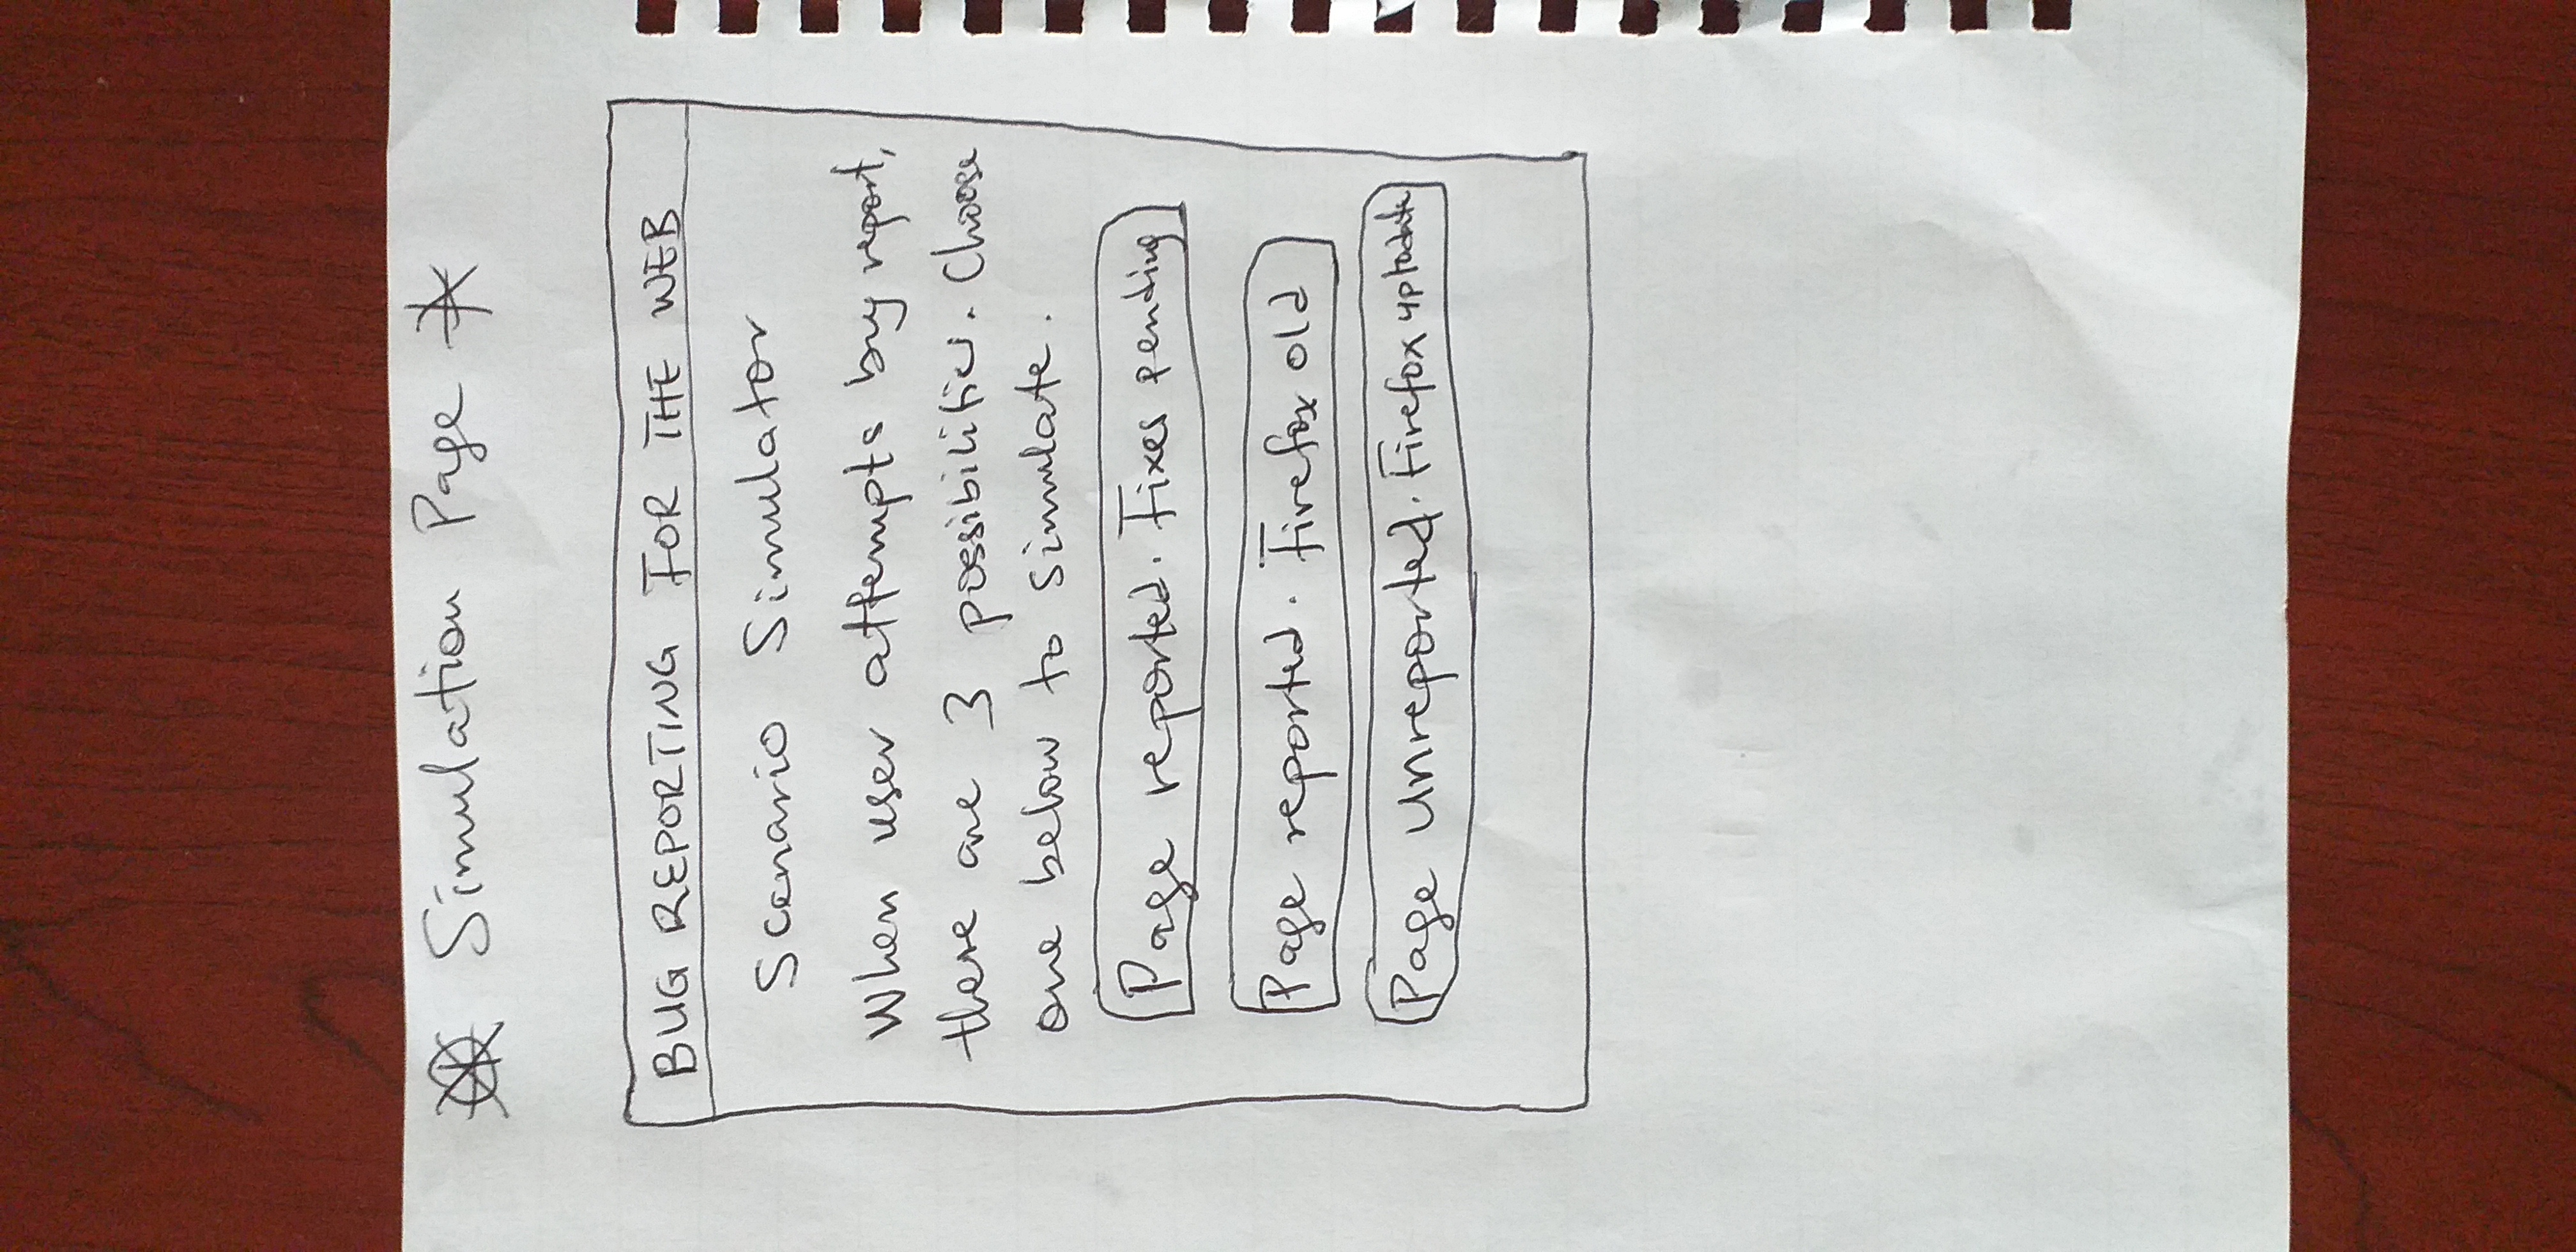 Simulation Page
BUG REPORTING FOR THE WEB
Scenario Simulator
When user attempts bug report,
there are 3 possibilities. Choose
one below to simulate.
Page reported. Fixes pending
Page reported. Firefox old
Page Unreported. Firefox uptodate